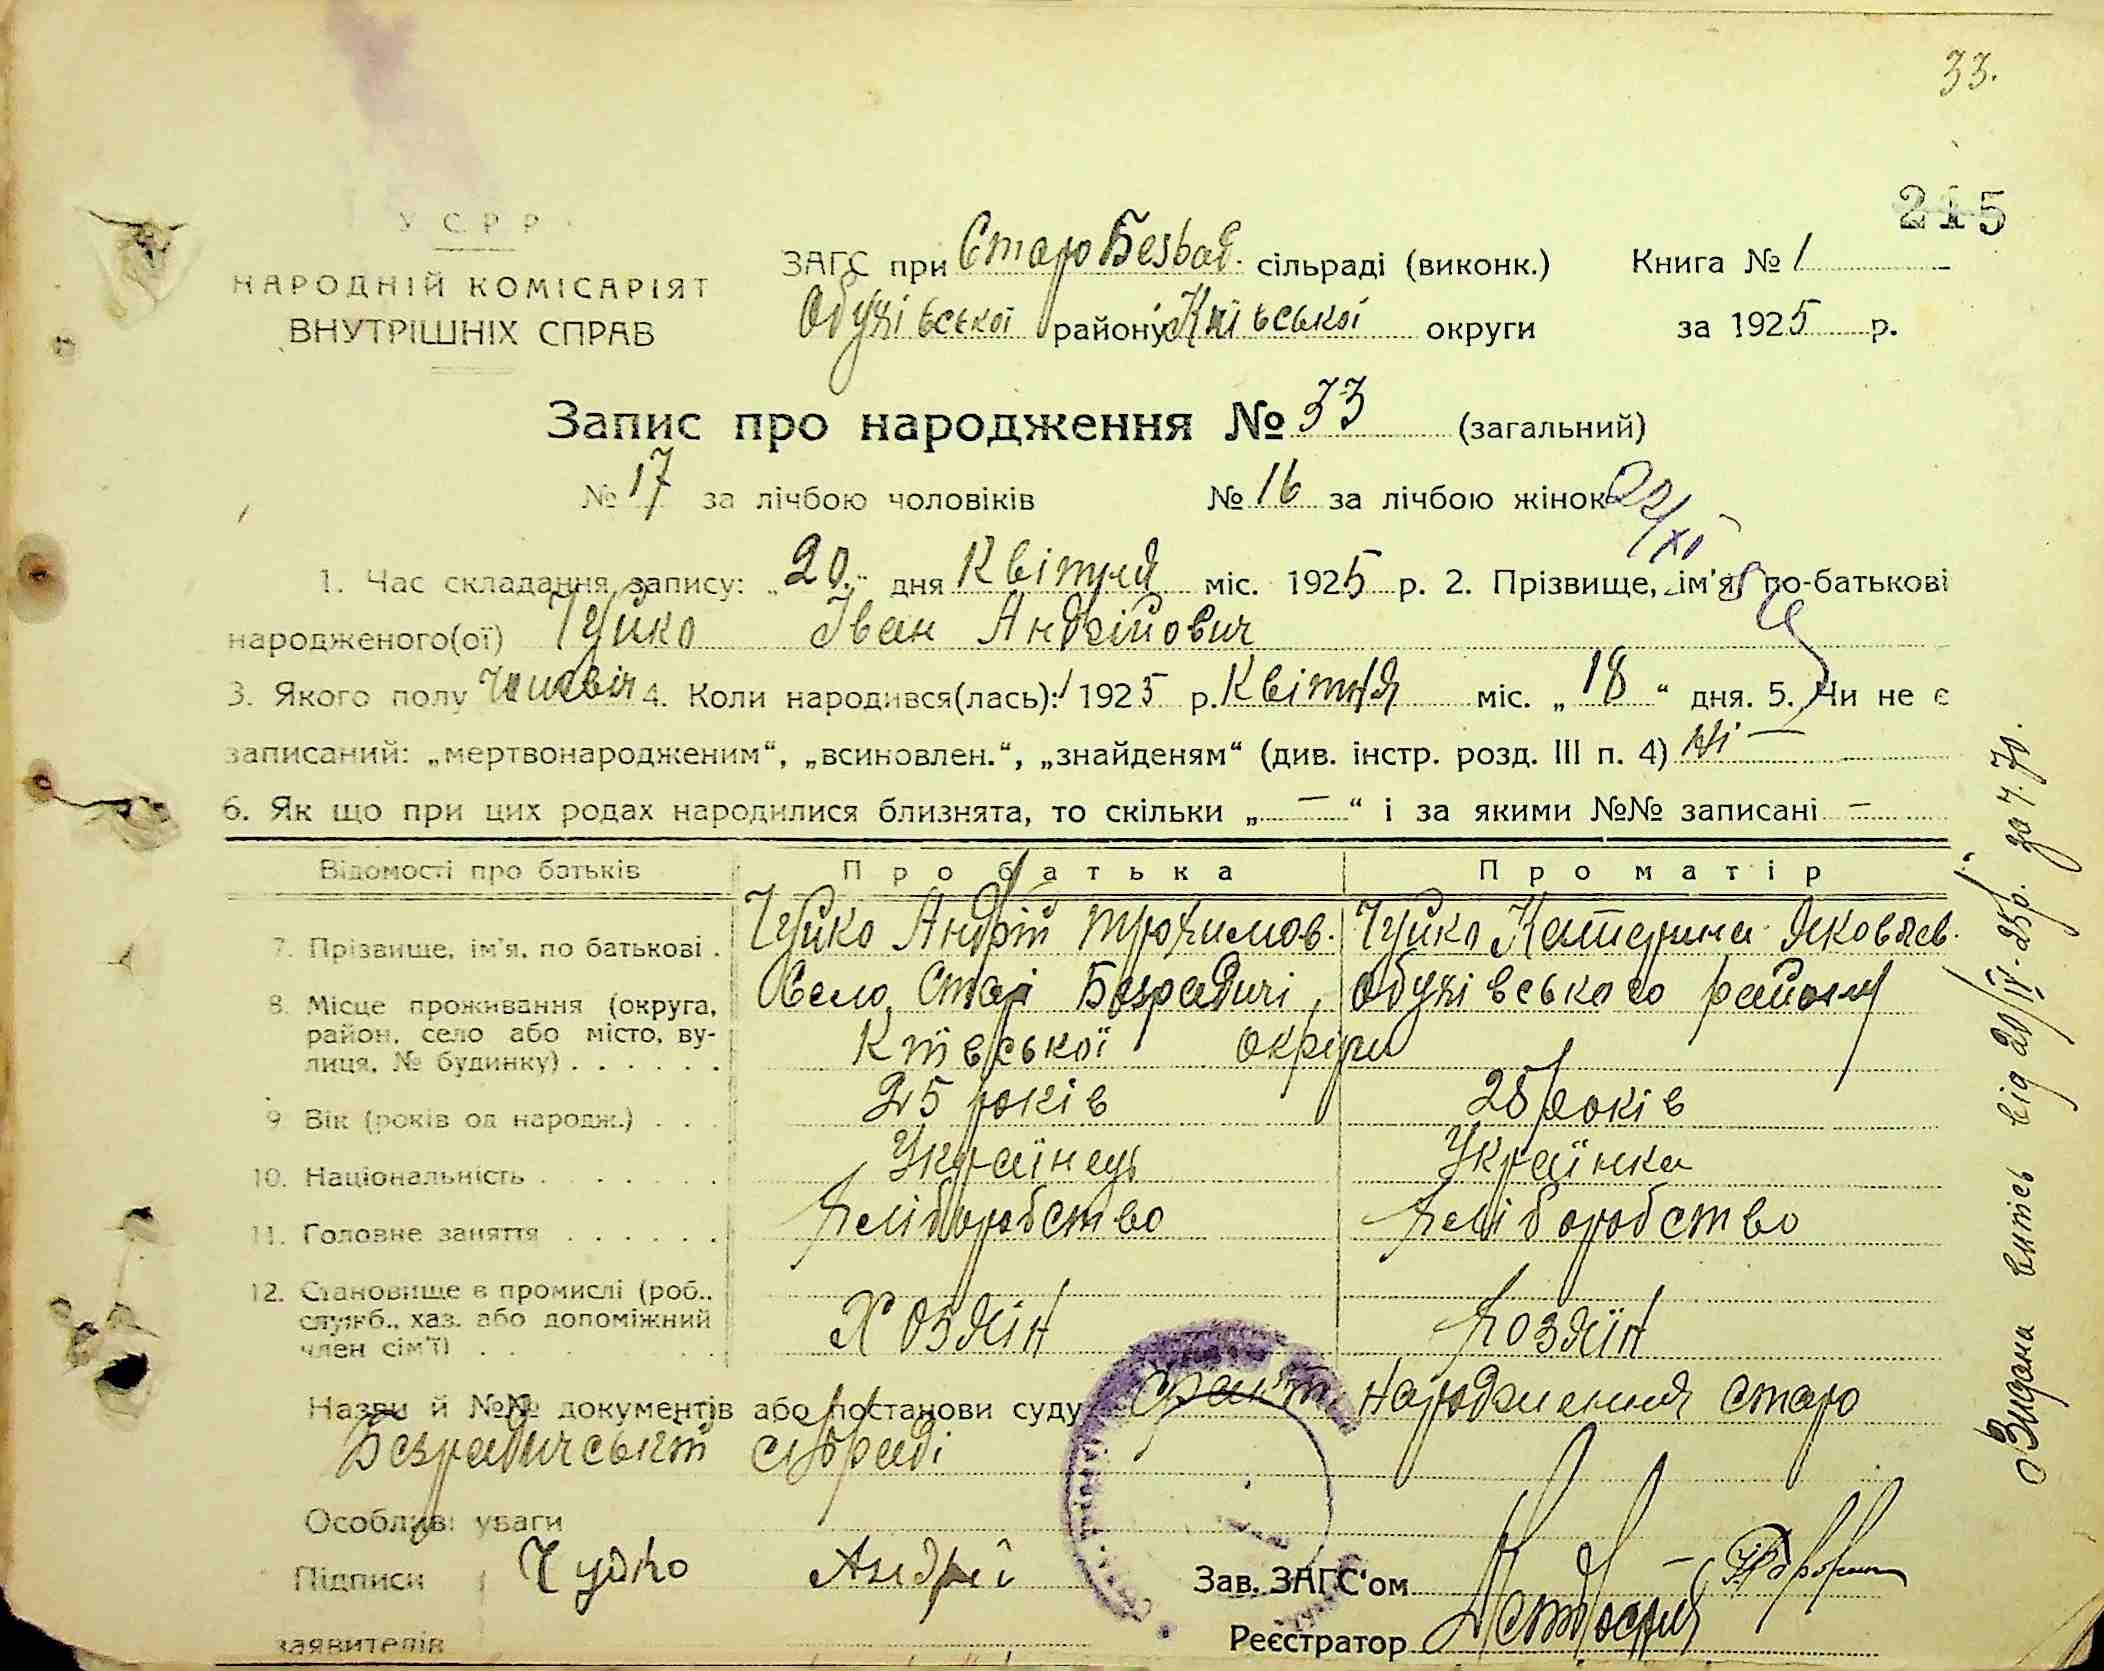 33.
215
У С Р Р
НАРОДНІЙ КОМІСАРІЯТ
ВНУТРІШНІХ СПРАВ
ЗАГС при Старо Безрад. сільраді (виконк.) Книга № 1
Обухівської району Київської округи за 1925 р.
Запис про народження № 33 (загальний)
№ 17 за лічбою чоловіків № 16 за лічбою жінок
22/XI
1. Час складання запису: „20" дня Квітня міс. 1925 р. 2. Прізвище, ім'я, по-батькові
народженого(ої) Чуйко Іван Андрійович
3. Якого полу Чоловіч 4. Коли народився(лась): 1925 р. Квітня міс. „18" дня. 5. Чи не є
записаний: „мертвонародженим", „всиновлен.", „знайденям" (див. інстр. розд. III п. 4) ні —
6. Як що при цих родах народилися близнята, то скільки „ — " і за якими №№ записані —
Відомості про батьків Про батька Про матір
7. Прізвище, ім'я, по батькові . Чуйко Андрій Трохимов. Чуйко Катерина Яковлев.
8. Місце проживання (округа, район, село або місто, вулиця, № будинку) . . . . . . Село Старі Безрадичі, Обухівського району
Київської округи
9. Вік (років од народж.) . . . 25 років 25 років
10. Національність . . . . . . . Українець Українка
11. Головне заняття . . . . . . Хліборобство Хліборобство
12. Становище в промислі (роб., служб., хаз. або допоміжний член сім'ї) . . . . . . . Хозяїн Хозяїн
Назви й №№ документів або постанови суду факт народження старо
Безрадичській сільраді
Особливі уваги
Підписи Чуйко Андрій Зав. ЗАГС'ом
заявителів Реєстратор
Видана витись від 20/IV-25р. за ч. 70.